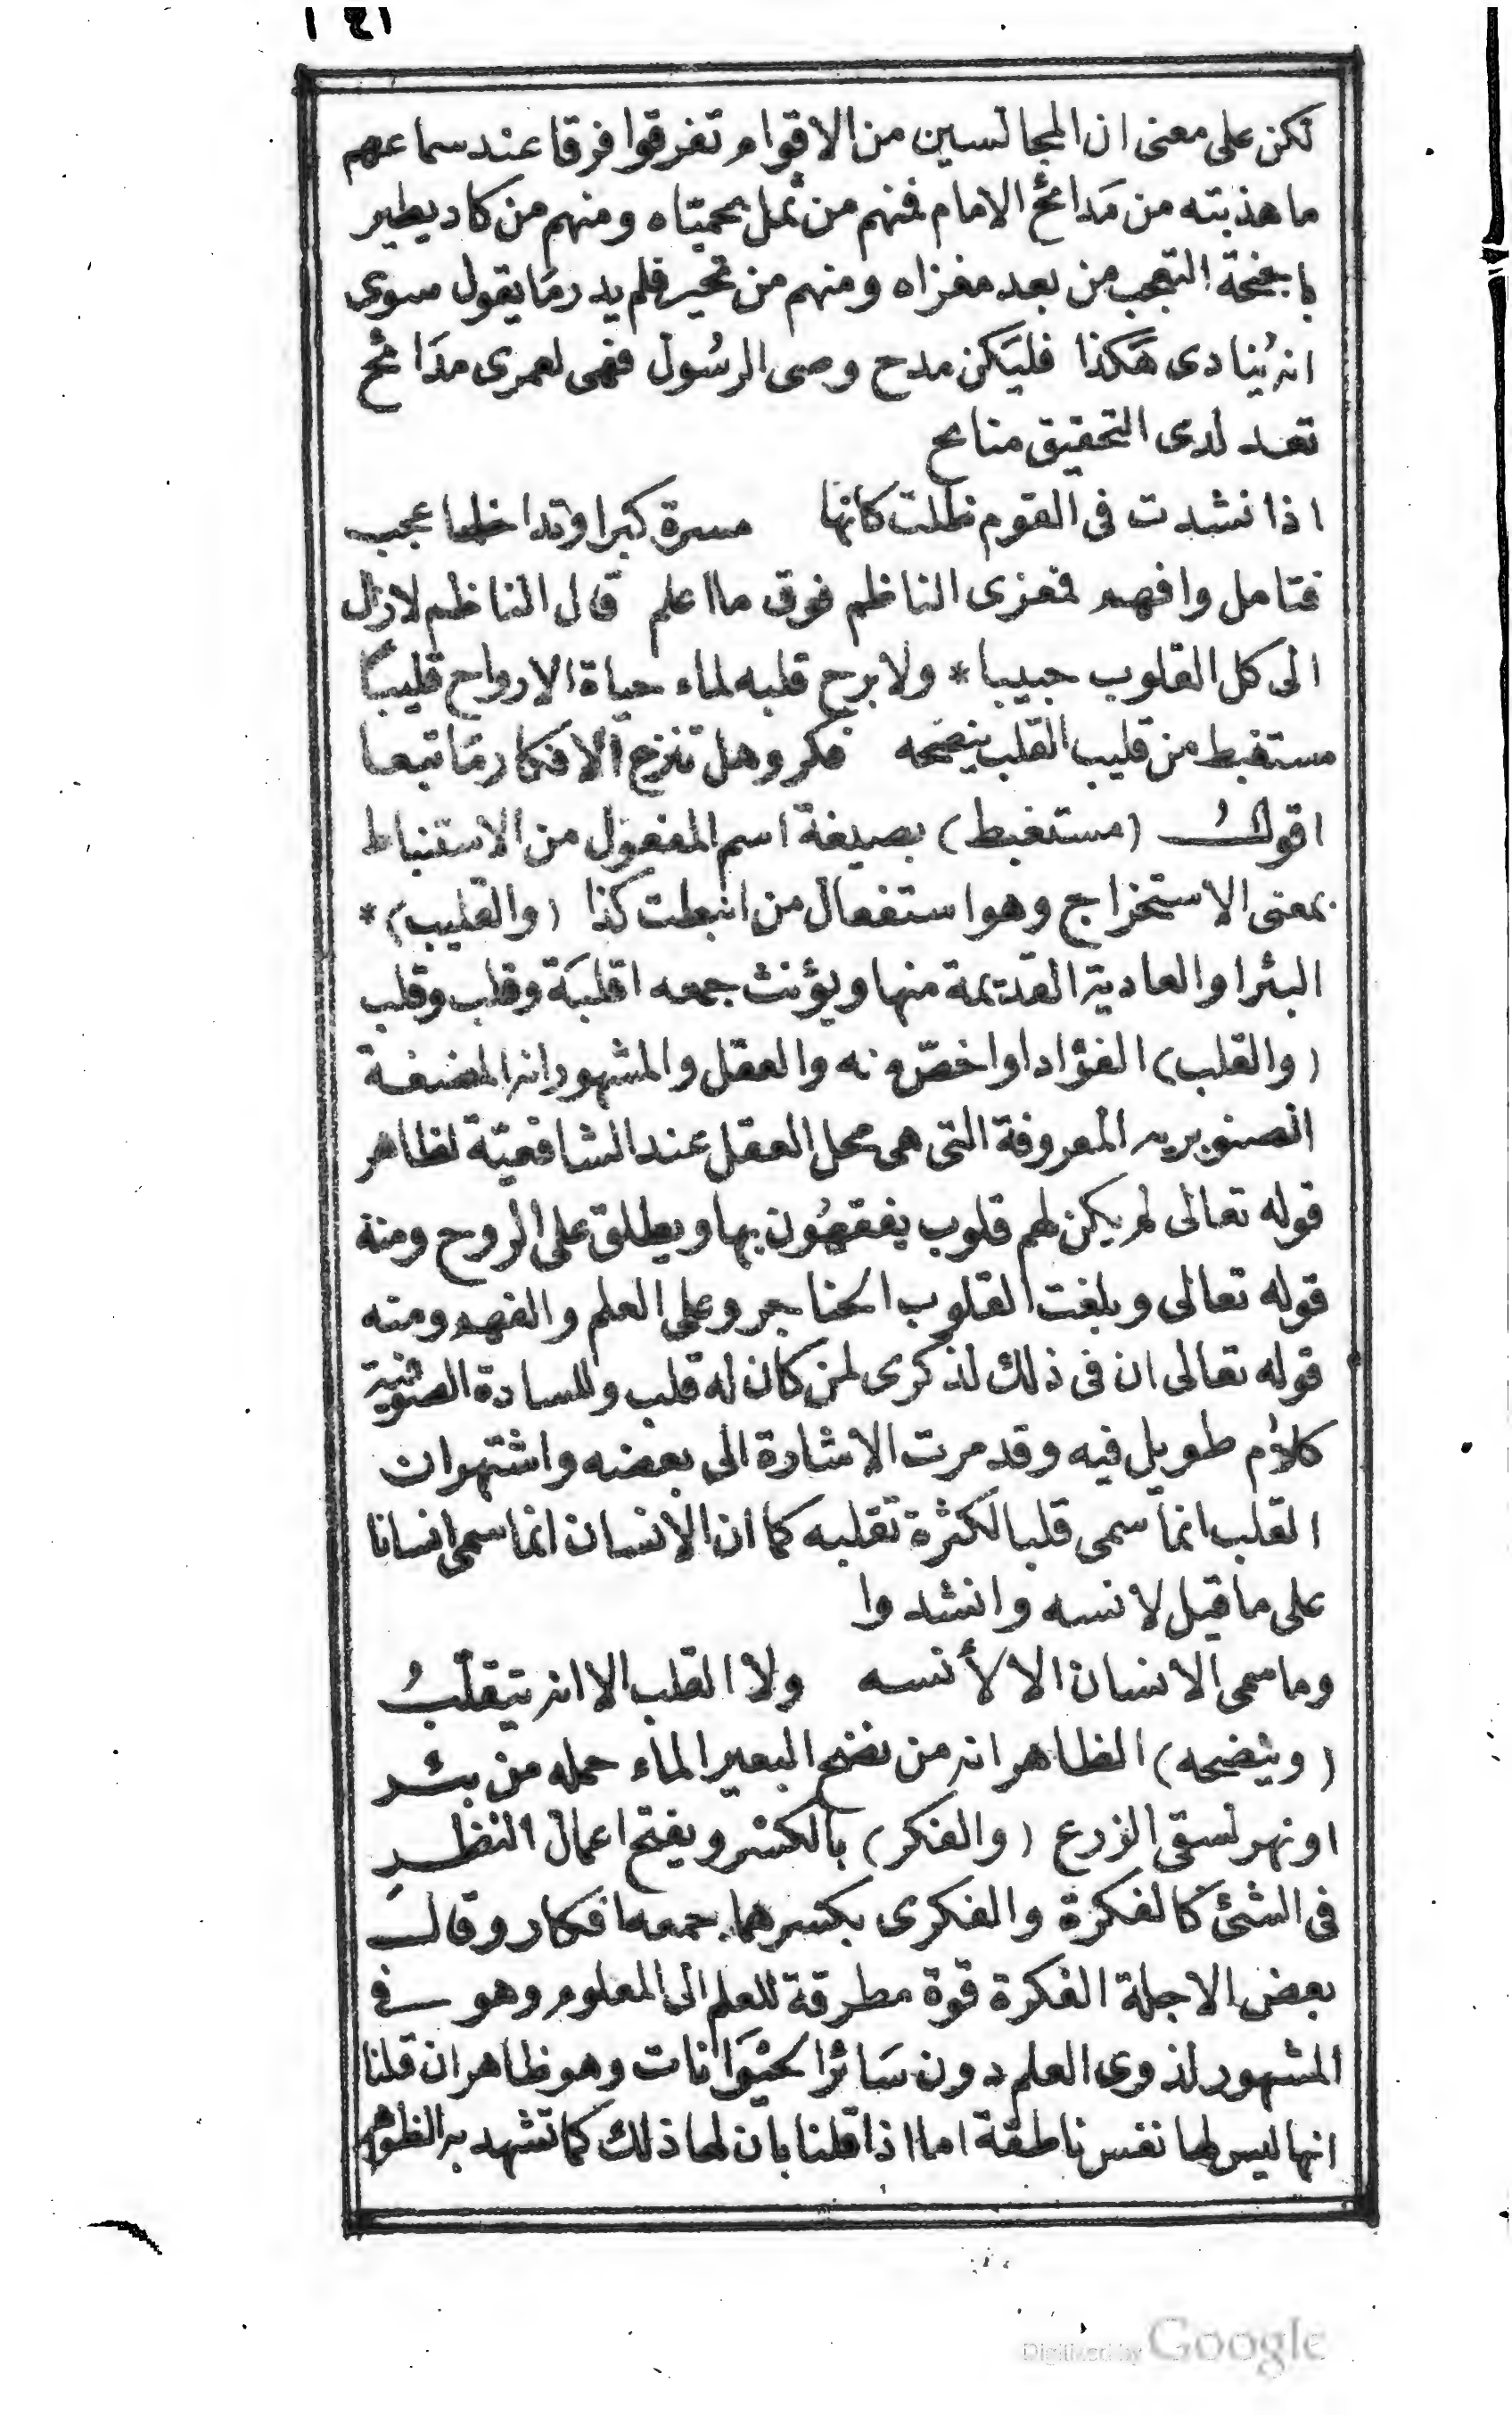 ١٤١
لكن على معنى ان المجالسين من الاقوام تفرقوا فرقا عند سماعهم
ما هذبته من مَدائح الامام فمنهم من ثمل بحميّاه ومنهم من كاد يطير
باجنحة التعجب من بعد مغزاه ومنهم من تحير فلم يدر مَا يقول سوى
انه يُنادى هَكذا فليَكن مدح وصى الرسُول فهى لعمرى مدَائح
تعد لدى التحقيق منائح
اذا نشدت فى القوم ظلت كانها مسرة كبر او تداخلها عجب
فتامل وافهم فمغزى الناظم فوق ما اعلم قال الناظم لازال
الى كل القلوب حبيبا * ولا برح قلبه لماء حياة الارواح قليبًا
مستنبط من قليب القلب ينضحه فكر وهل تنزح الافكار مَا تبعا
اقولُ (مستنبط) بصيغة اسم المفعول من الاستنباط
بمعنى الاستخراج وهو استفعال من انبطت كذا (والقليب) *
البئر او العادية القديمة منها ويؤنث جمعه اقلبَة وقلب وقلب
(والقلب) الفؤاد او اخصّ منه والعقل والمشهور انه المضغة
الصنوبريه المعروفة التى هى محل العقل عند الشافعيّة لظاهر
قوله تعالى لم يكن لهم قلوب يفقهُون بها ويطلق على الروح ومنه
قوله تعالى وبلغت القلوب الحناجر وعلى العلم والفهم ومنه
قوله تعالى ان فى ذلك لذكرى لمن كان له قلب وللسادة الصوفية
كلاُم طويل فيه وقد مرت الاشارة الى بعضه واشتهر ان
القلب انما سمى قلبا لكثرة تقلبه كما ان الانسان انما سمى انسانا
على ما قيل لانسه وانشدوا
وما سمى الانسان الا لأنسه ولا القلب الا انه يتقلّبُ
(وينضحه) الظاهر انه من نضح البعير الماء حمله من بئر
او نهر لسقى الزرع (والفكر) بالكسْر ويفتح اعمال النظرِ
فى الشئ كالفكرة والفكرى بكسرهما جمعه افكار وقال
بعض الاجلة الفكرة قوة مطرقة للعلم الى المعلوم وهو فى
المشهور لذوى العلم دون سَائر الحيْوَانات وهو ظاهر ان قلنا
انها ليس لها نفس ناطقة اما اذا قلنا بان لها ذلك كما تشهد به الظواهر
Digitized by Google